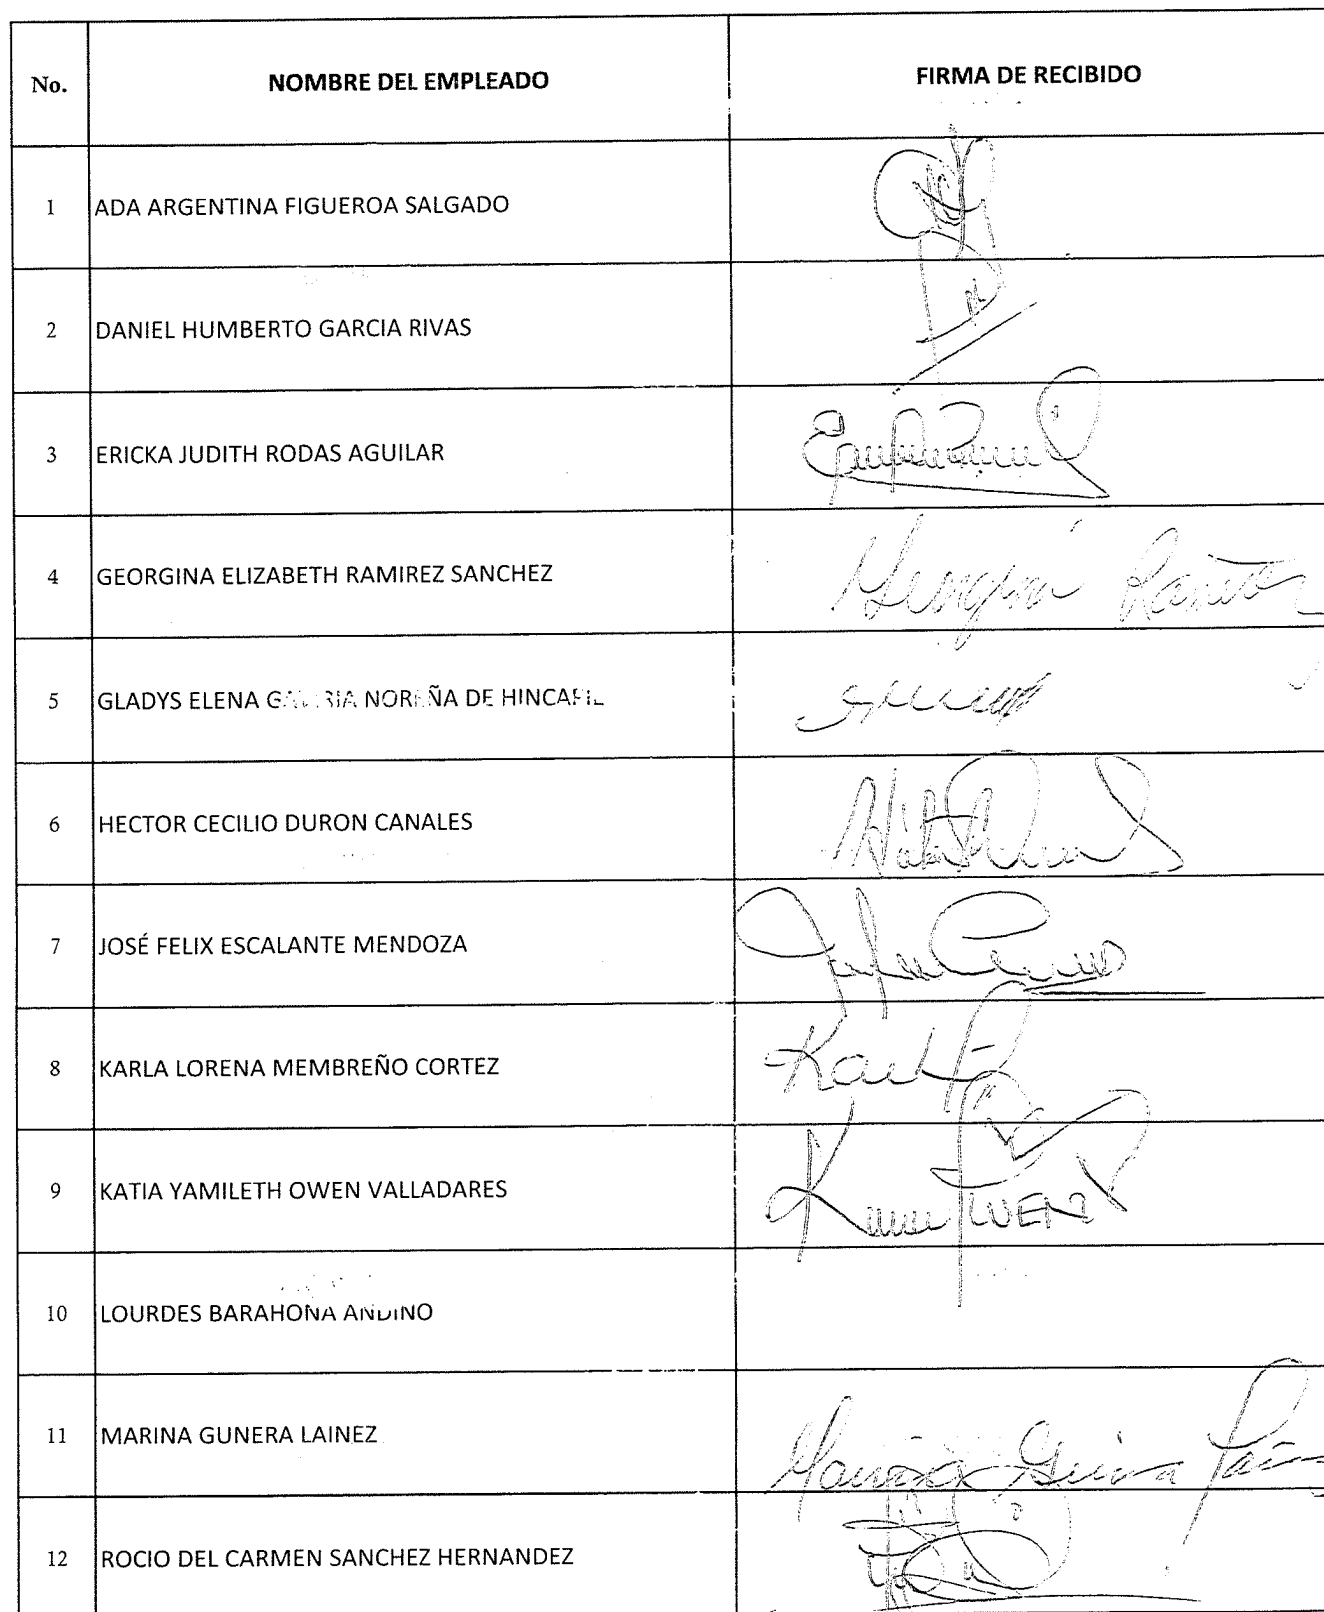 No. NOMBRE DEL EMPLEADO FIRMA DE RECIBIDO
1 ADA ARGENTINA FIGUEROA SALGADO
2 DANIEL HUMBERTO GARCIA RIVAS
3 ERICKA JUDITH RODAS AGUILAR
4 GEORGINA ELIZABETH RAMIREZ SANCHEZ
5 GLADYS ELENA NOREÑA DE
6 HECTOR CECILIO DURON CANALES
7 JOSÉ FELIX ESCALANTE MENDOZA
8 KARLA LORENA MEMBREÑO CORTEZ
9 KATIA YAMILETH OWEN VALLADARES
10 LOURDES BARAHONA ANDINO
11 MARINA GUNERA LAINEZ
12 ROCIO DEL CARMEN SANCHEZ HERNANDEZ